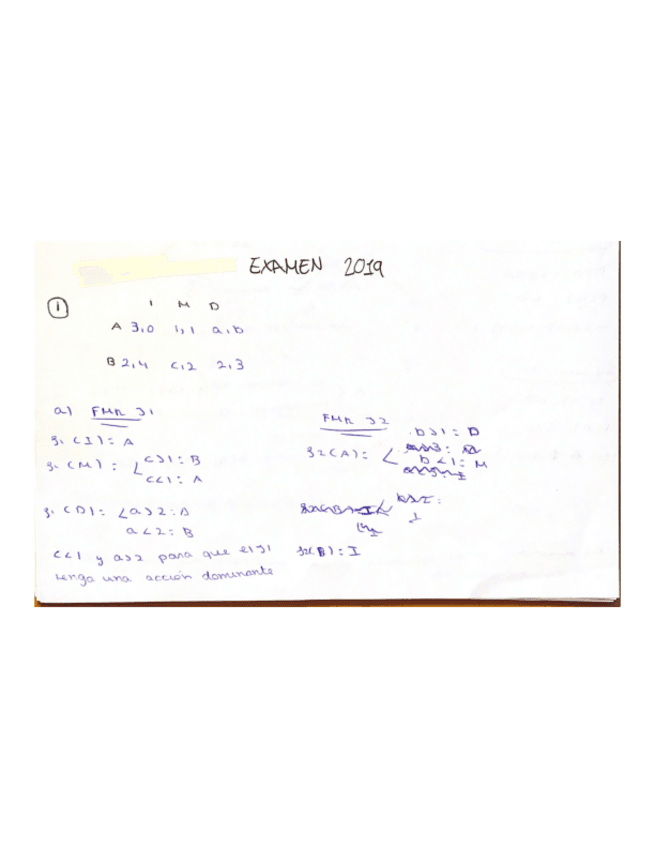 EXAMEN 2019
1
I M D
A 3,0 1,1 a,b
B 2,4 c,2 2,3
a) FMR J1
J1 (I): A
J1 (M): c>1: B
c<1: A
J1 (D): a>2: A
a<2: B
c<1 y a>2 para que el J1
tenga una acción dominante
FMR J2
b>1: D
J2(A):
b<1: M
J2(B): I